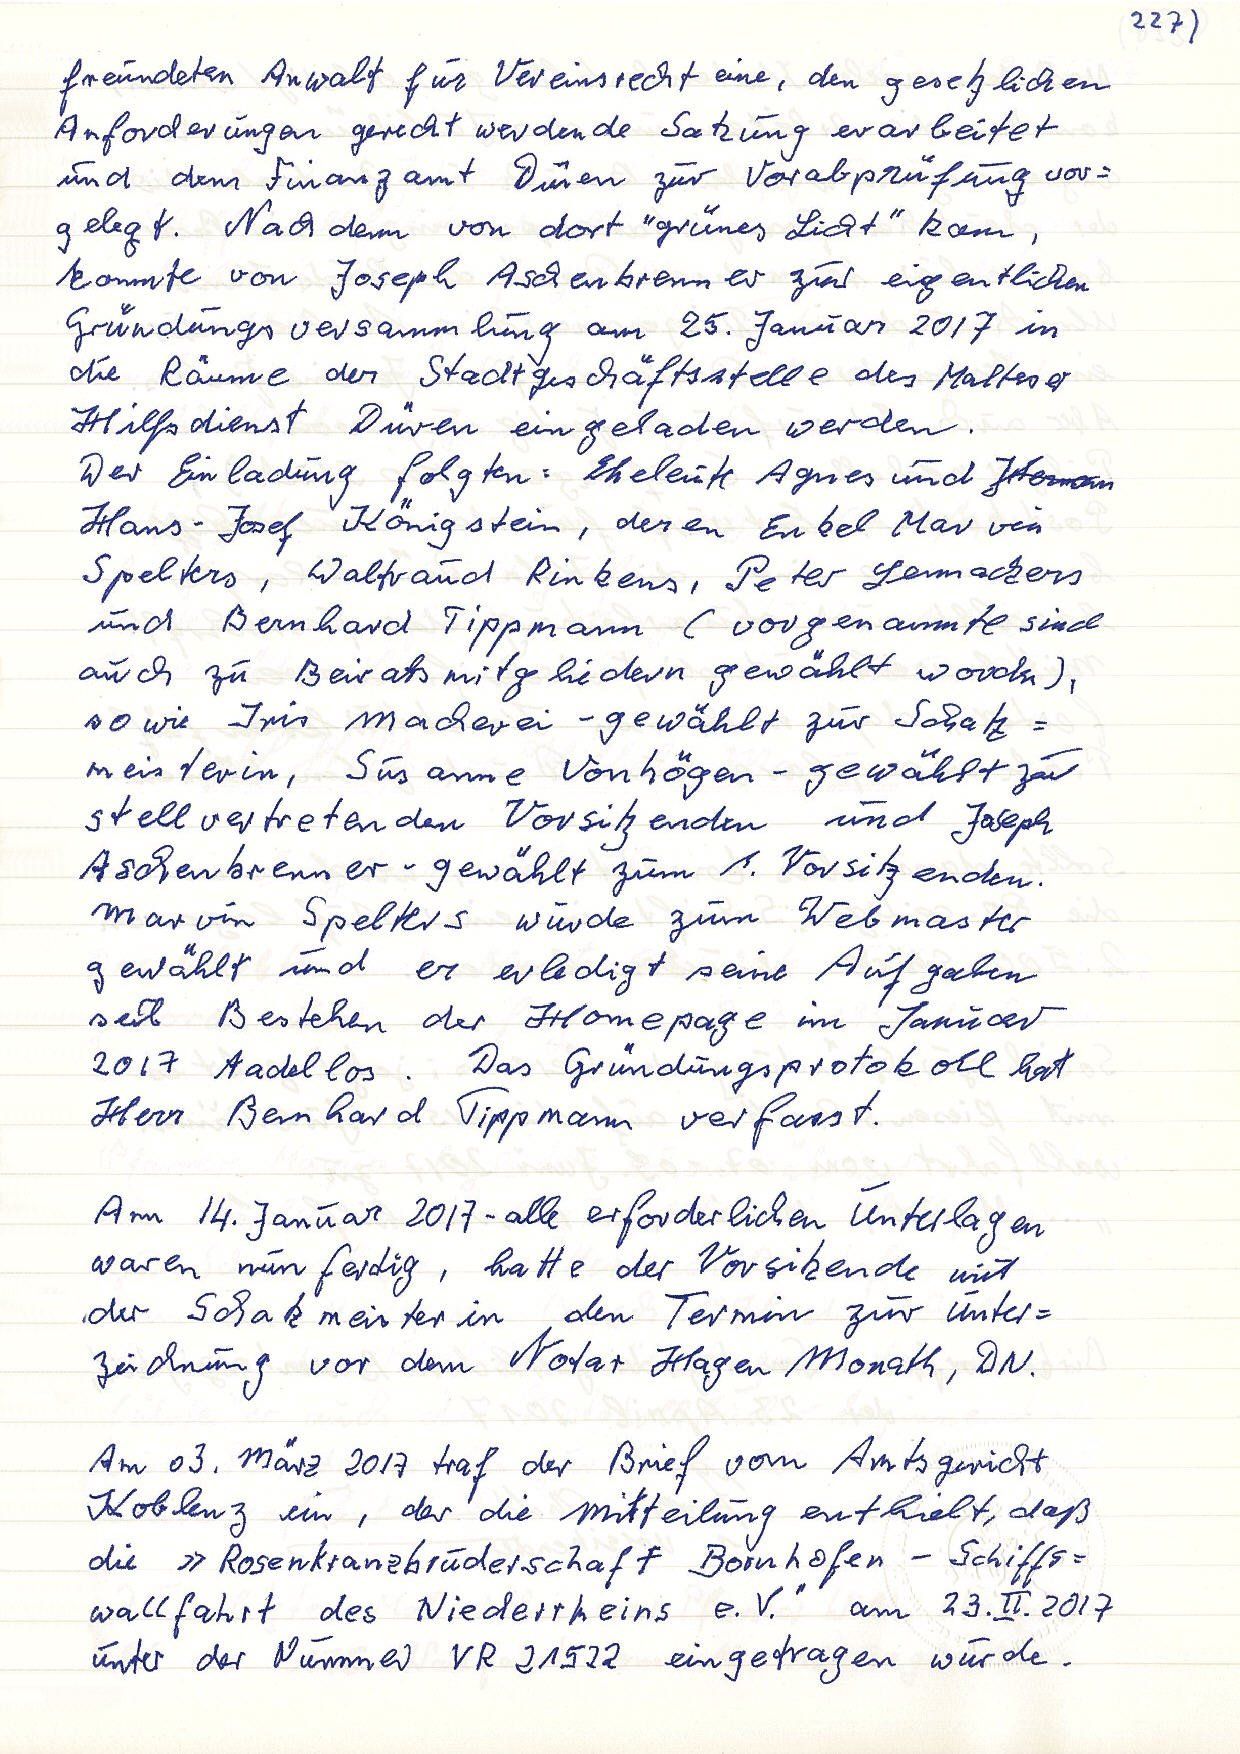 227)
freundeten Anwalt für Vereinsrecht eine, den gesetzlichen
Anforderungen gerecht werdende Satzung erarbeitet
und dem Finanzamt Düren zur Vorabprüfung vor=
gelegt. Nachdem von dort "grünes Licht" kam,
konnte von Joseph Aschenbrenner zur eigentlichen
Gründungsversammlung am 25. Januar 2017 in
die Räume der Stadtgeschäftsstelle des Malteser
Hilfsdienst Düren eingeladen werden.
Der Einladung folgten: Eheleute Agnes und
Hans-Josef Königstein, deren Enkel Marvin
Spelters, Waltraud Rinkens, Peter Lennackers
und Bernhard Tippmann (vorgenannte sind
auch zu Beiratsmitgliedern gewählt worden),
sowie Iris Macherei - gewählt zur Schatz=
meisterin, Susanne Vonhögen - gewählt zur
stellvertretenden Vorsitzenden und Joseph
Aschenbrenner - gewählt zum 1. Vorsitzenden.
Marvin Spelters wurde zum Webmaster
gewählt und er erledigt seine Aufgaben
seit Bestehen der Homepage im Januar
2017 tadellos. Das Gründungsprotokoll hat
Herr Bernhard Tippmann verfasst.
Am 14. Januar 2017 - alle erforderlichen Unterlagen
waren nun fertig, hatte der Vorsitzende mit
der Schatzmeisterin den Termin zur Unter=
zeichnung vor dem Notar Hagen Monath, DN.
Am 03. März 2017 traf der Brief vom Amtsgericht
Koblenz ein, der die Mitteilung enthielt, daß
die »Rosenkranzbruderschaft Bornhofen - Schiffs=
wallfahrt des Niederrheins e.V." am 23.II.2017
unter der Nummer VR 21522 eingetragen wurde.